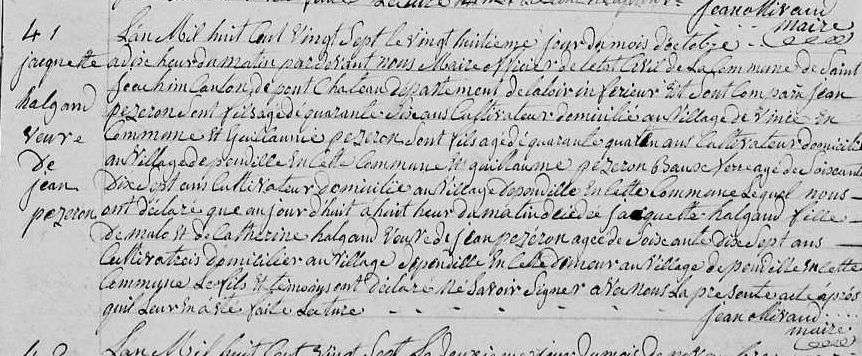 jean Mivaud
maire
41
jacquette
halgand
veuve
De
jean
pezeron
L'an Mil huit Cent vingt Sept le vingt huitieme jour du mois d'octobre
a dix heur du matin par devant nous Maire officier de l'etat Civil de La Commune de Saint
joachim Canton de pont Chateau departement de la loir inferieur Est Sont Compara jean
pezeron Sont fils agé de quarante Six ans Cultivateur domicilié au village de En
Commune Et Guillaume pezeron Sont fils agé de quarante ans Cultivateur domicilié
au village de pendille En Cette Commune Et guillaume pezeron Beaux agé de Soixante
Dix Sept ans Cultivateur domicilié au village de pendille En Cette Commune Lequel nous
ont déclaré que aujourd'huit a huit heur du matin décédée jacquette halgand fille
De malo Et de Catherine halgand veuve de jean pezeron agée de Soixante Dix Sept ans
domicilier au village pendille En Cette au village de pendille En Cette
Commune Le fils Et temoins ont déclaré Ne Savoir Signer avec nous La presente acte après
quil Leur En a été faite Lecture
jean Mivaud
maire
L'an Mil huit Cent vingt Sept jour du mois de